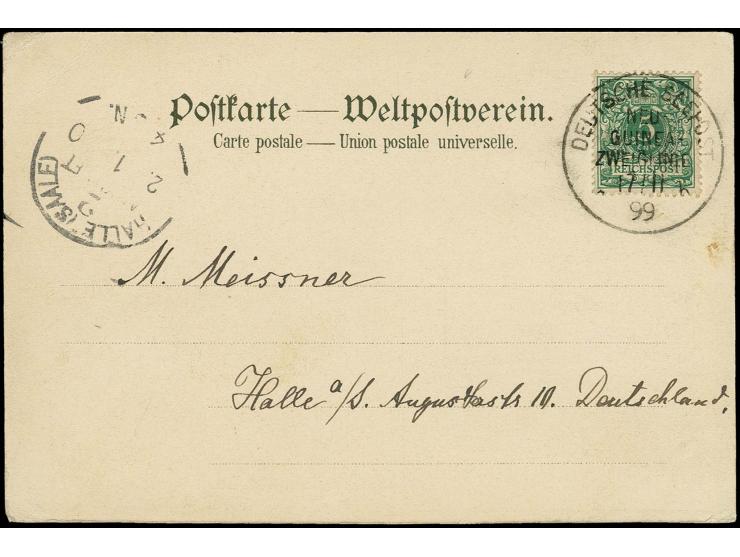 Postkarte — Weltpostverein.
Carte postale — Union postale universelle.
DEUTSCHE SEEPOST
NEU
GUINEA
ZWEIGLINIE
17/11
99
5
REICHSPOST
HALLE (SAALE)
M. Meissner
Halle a/S. Augustastr 10. Deutschland,